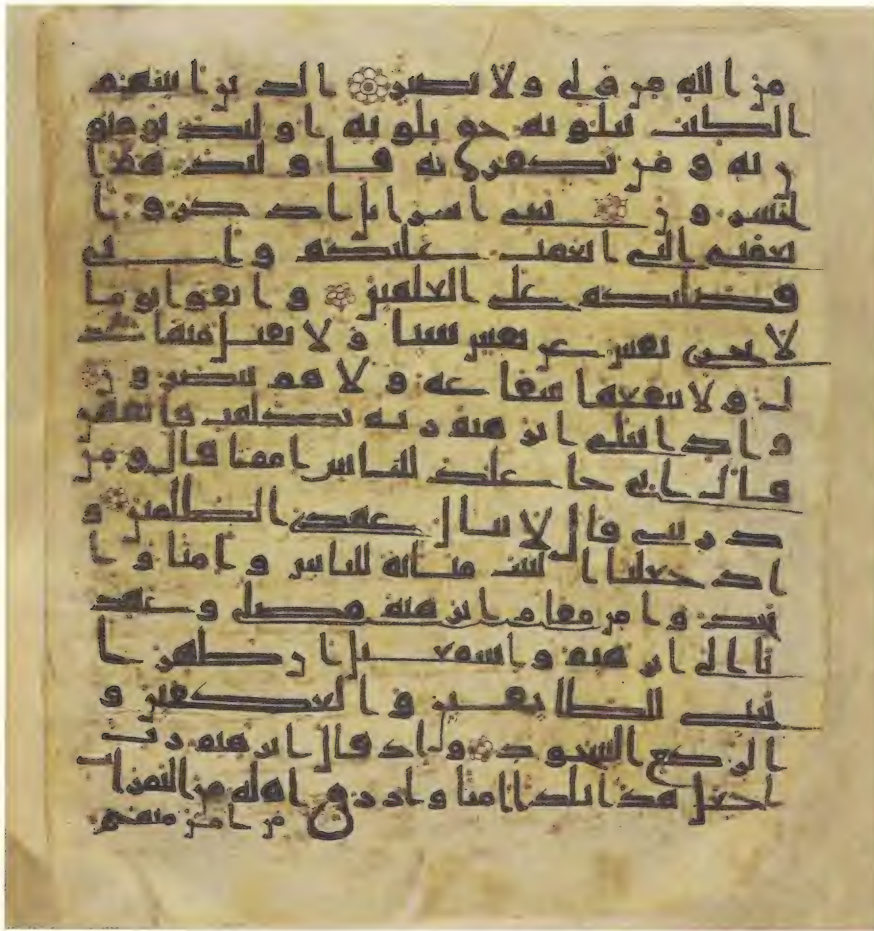 من الله من ولي ولا نصير الذين اتينهم
الكتب يتلونه حق تلوته اولئك يومنو
ن به ومن يكفر به فاولئك هم ا
لخسرون يبني اسرايل اذكروا
نعمتي التي انعمت عليكم واني
فضلتكم على العلمين واتقوا يوما
لا تجزي نفس عن نفس شيا ولا يقبل منها عد
ل ولا تنفعها شفاعة ولا هم ينصرون
واذ ابتلى ابرهيم ربه بكلمت فاتمهن
قال اني جاعلك للناس اماما قال ومن
ذريتي قال لا ينال عهدي الظلمين و
اذ جعلنا البيت مثابة للناس وامنا وا
تخذوا من مقام ابرهيم مصلى وعهد
نا الى ابرهيم واسمعيل ان طهرا
بيتي للطايفين والعكفين و
الركع السجود واذ قال ابرهيم رب
اجعل هذا بلدا امنا وارزق اهله من الثمرات
من امن منهم